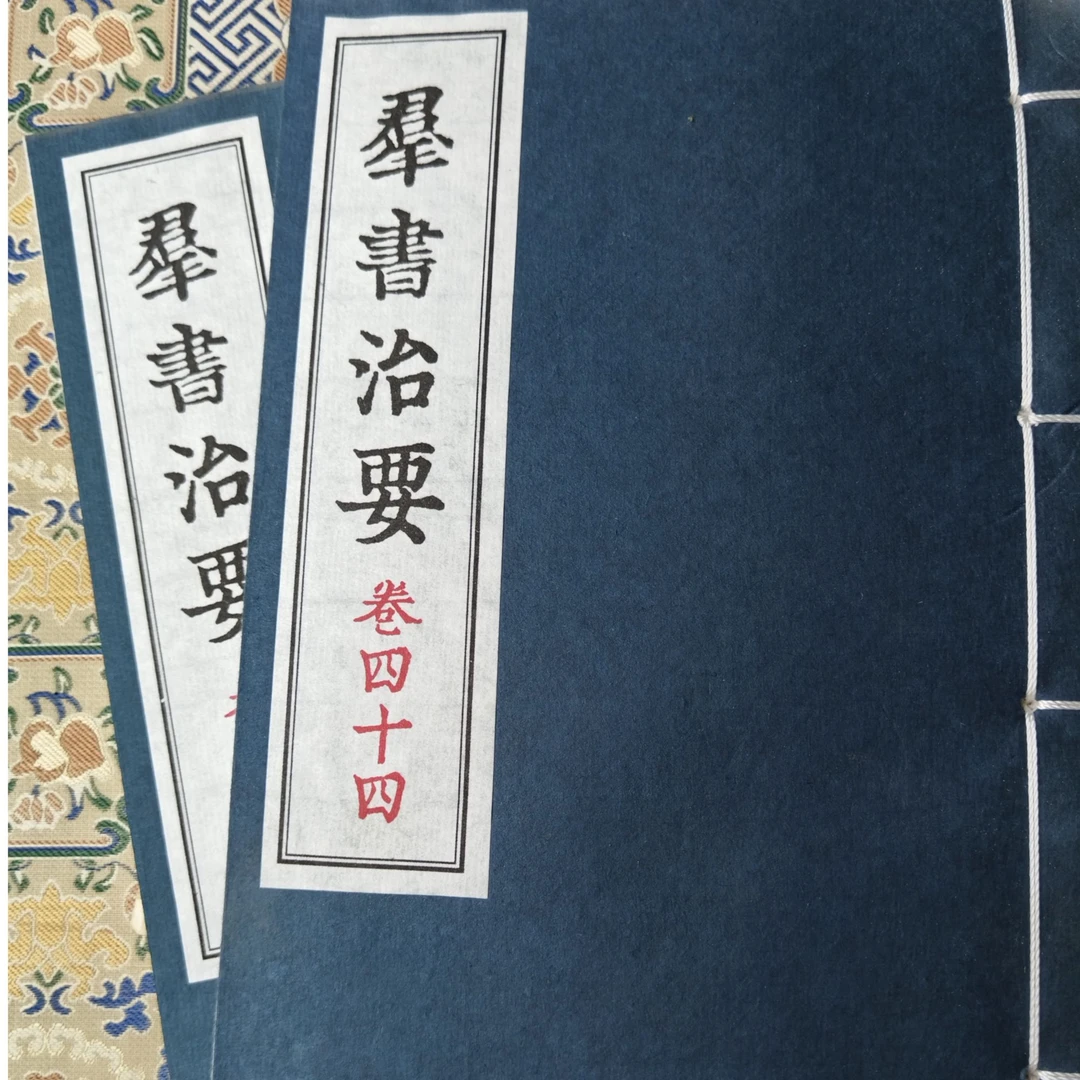 羣書治要
卷四十四
羣書治要